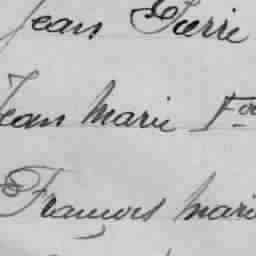 Jean Pierre
Jean Marie Fois
François Marie